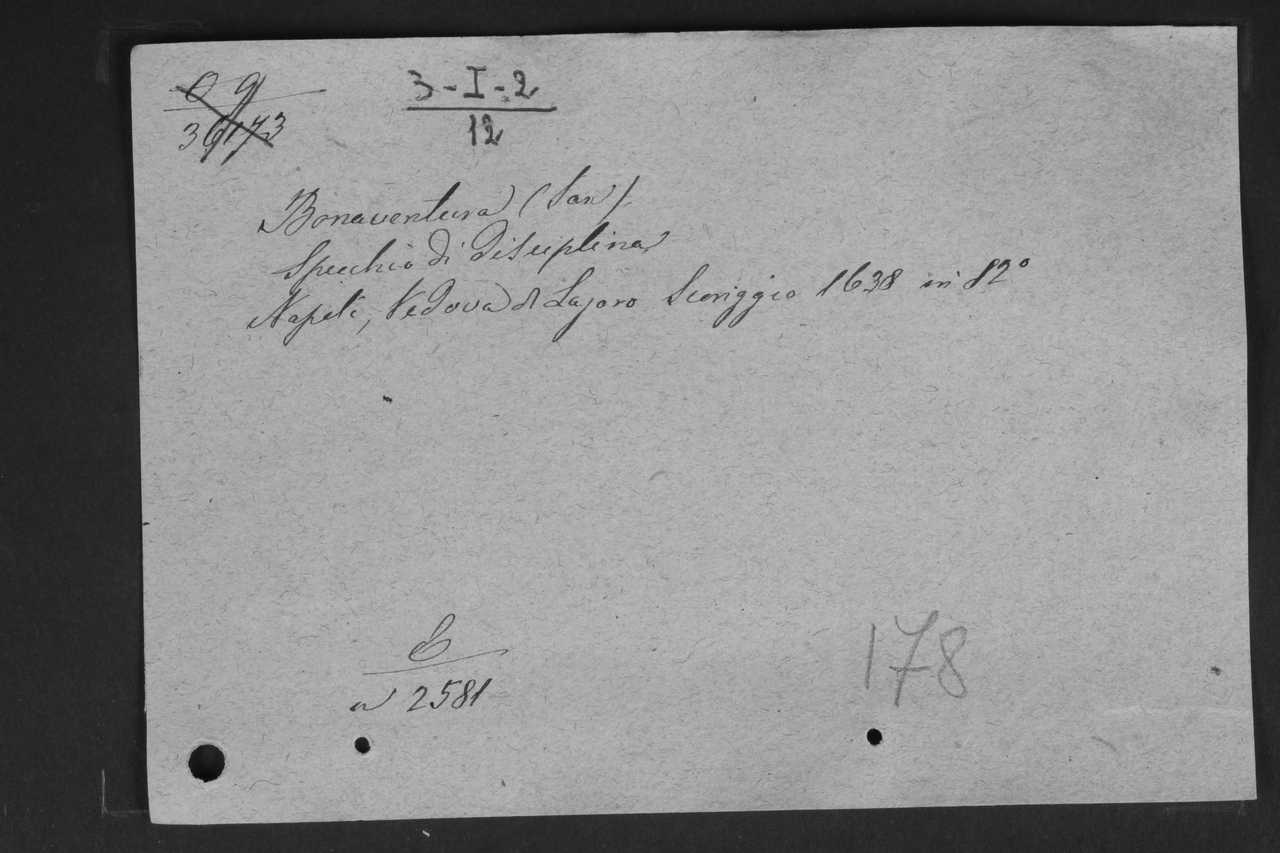 3-I-2
12
Bonaventura (San)
Specchio di Disciplina
Napoli, Vedova di Lazaro Scoriggio 1638 in 12°
2581
178